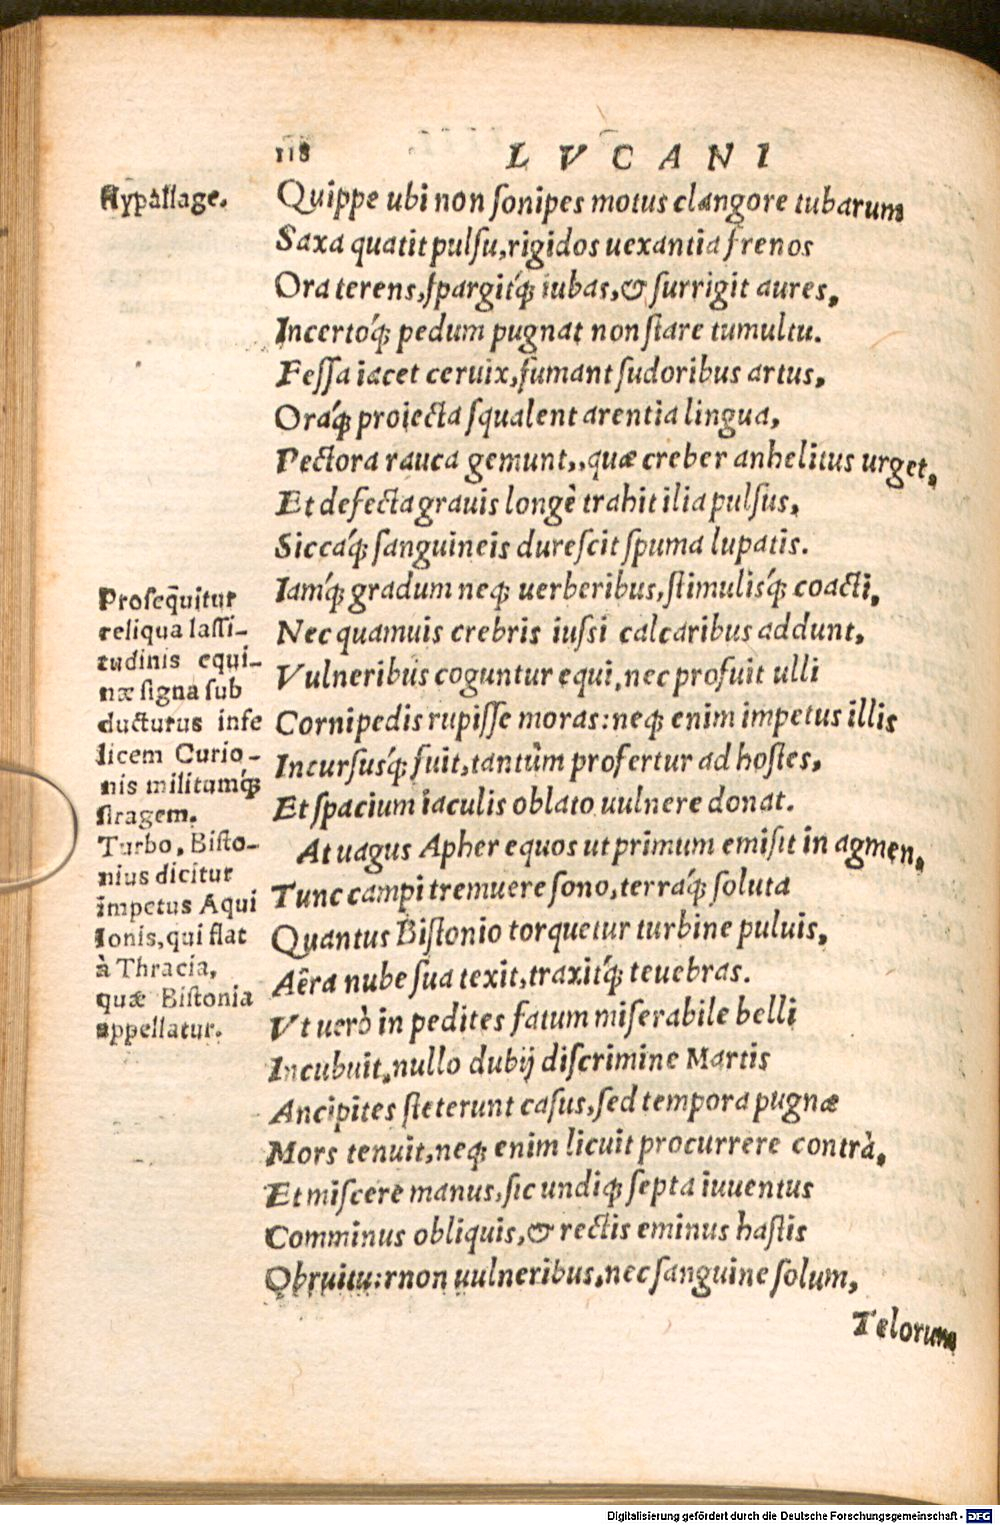 118 LVCANI
Hypallage.
Quippe ubi non sonipes motus clangore tubarum
Saxa quatit pulsu, rigidos uexantia frenos
Ora terens, spargitq́; iubas, & surrigit aures,
Incertoq́; pedum pugnat non stare tumultu.
Fessa iacet ceruix, fumant sudoribus artus,
Oraq́; proiecta squalent arentia lingua,
Pectora rauca gemunt,,quæ creber anhelitus urget,
Et defecta grauis longè trahit ilia pulsus,
Siccaq́; sanguineis durescit spuma lupatis.
Iamq́; gradum neq; uerberibus, stimulisq́; coacti,
Nec quamuis crebris iussi calcaribus addunt,
Vulneribus coguntur equi, nec profuit ulli
Cornipedis rupisse moras: neq; enim impetus illis
Incursusq́; fuit, tantùm profertur ad hostes,
Et spacium iaculis oblato uulnere donat.
At uagus Apher equos ut primum emisit in agmen,
Tunc campi tremuere sono, terraq́; soluta
Quantus Bistonio torquetur turbine puluis,
Aêra nube sua texit, traxitq́; teuebras.
Vt uerò in pedites fatum miserabile belli
Incubuit, nullo dubij discrimine Martis
Ancipites steterunt casus, sed tempora pugnæ
Mors tenuit, neq; enim licuit procurrere contrà,
Et miscere manus, sic undiq; septa iuuentus
Comminus obliquis, & rectis eminus hastis
Obruitu:rnon uulneribus, nec sanguine solum,
Telorum
Proseq̃uitur
reliqua lassi-
tudinis equi-
næ signa sub
ducturus infe
licem Curio-
nis militumq́;
stragem.
Turbo, Bisto-
nius dicitur
impetus Aqui
lonis, qui flat
à Thracia,
quæ Bistonia
appellatur.
Digitalisierung gefördert durch die Deutsche Forschungsgemeinschaft - DFG